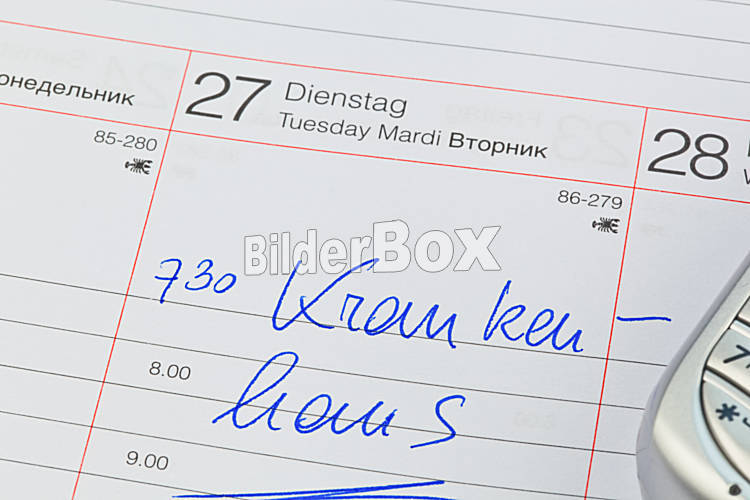 онедельник
85-280
27 Dienstag
Tuesday Mardi Вторник
86-279
28
BilderBox
7³⁰ Kranken-
haus
8.00
9.00
7
*